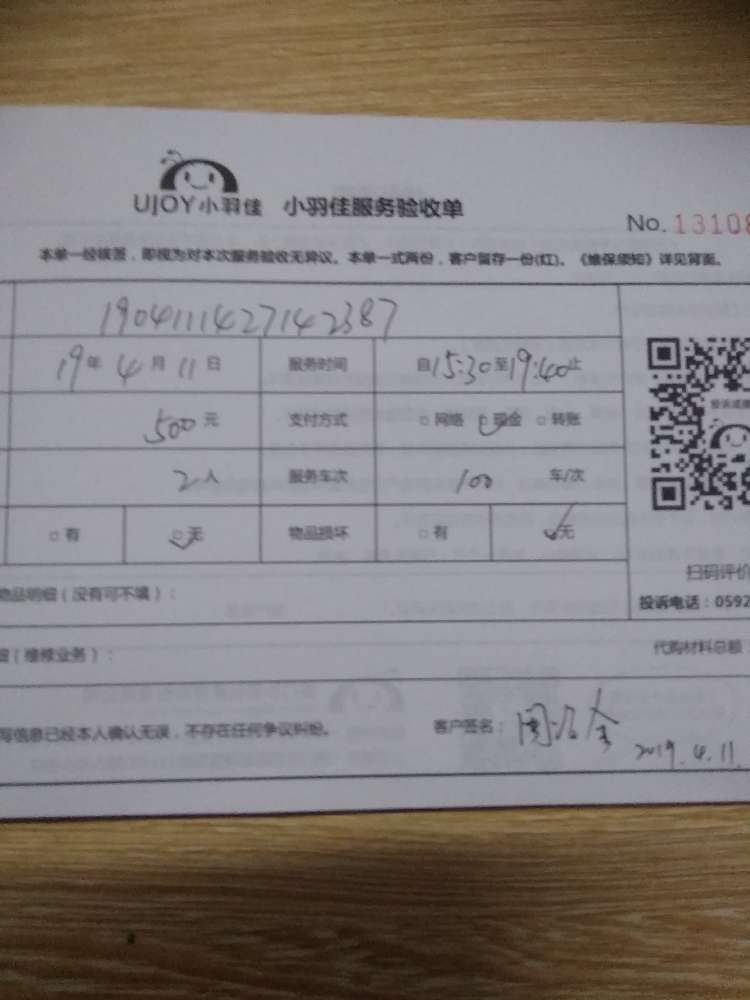 UJOY小羽佳 小羽佳服务验收单
No. 13108
本单一经核签，即视为对本次服务验收无异议。本单一式两份，客户留存一份(红)。《维保须知》详见背面。
1904111427142387
19年4月11日 服务时间 自15:30至19:40止
500元 支付方式 □网络 □现金 □转账
2人 服务车次 100 车/次
□有 □无 物品损坏 □有 □无
扫码评价
物品明细（没有可不填）：
投诉电话：0592
（维修业务）：
代购材料总额：
写信息已经本人确认无误，不存在任何争议纠纷。 客户签名：
2019.4.11